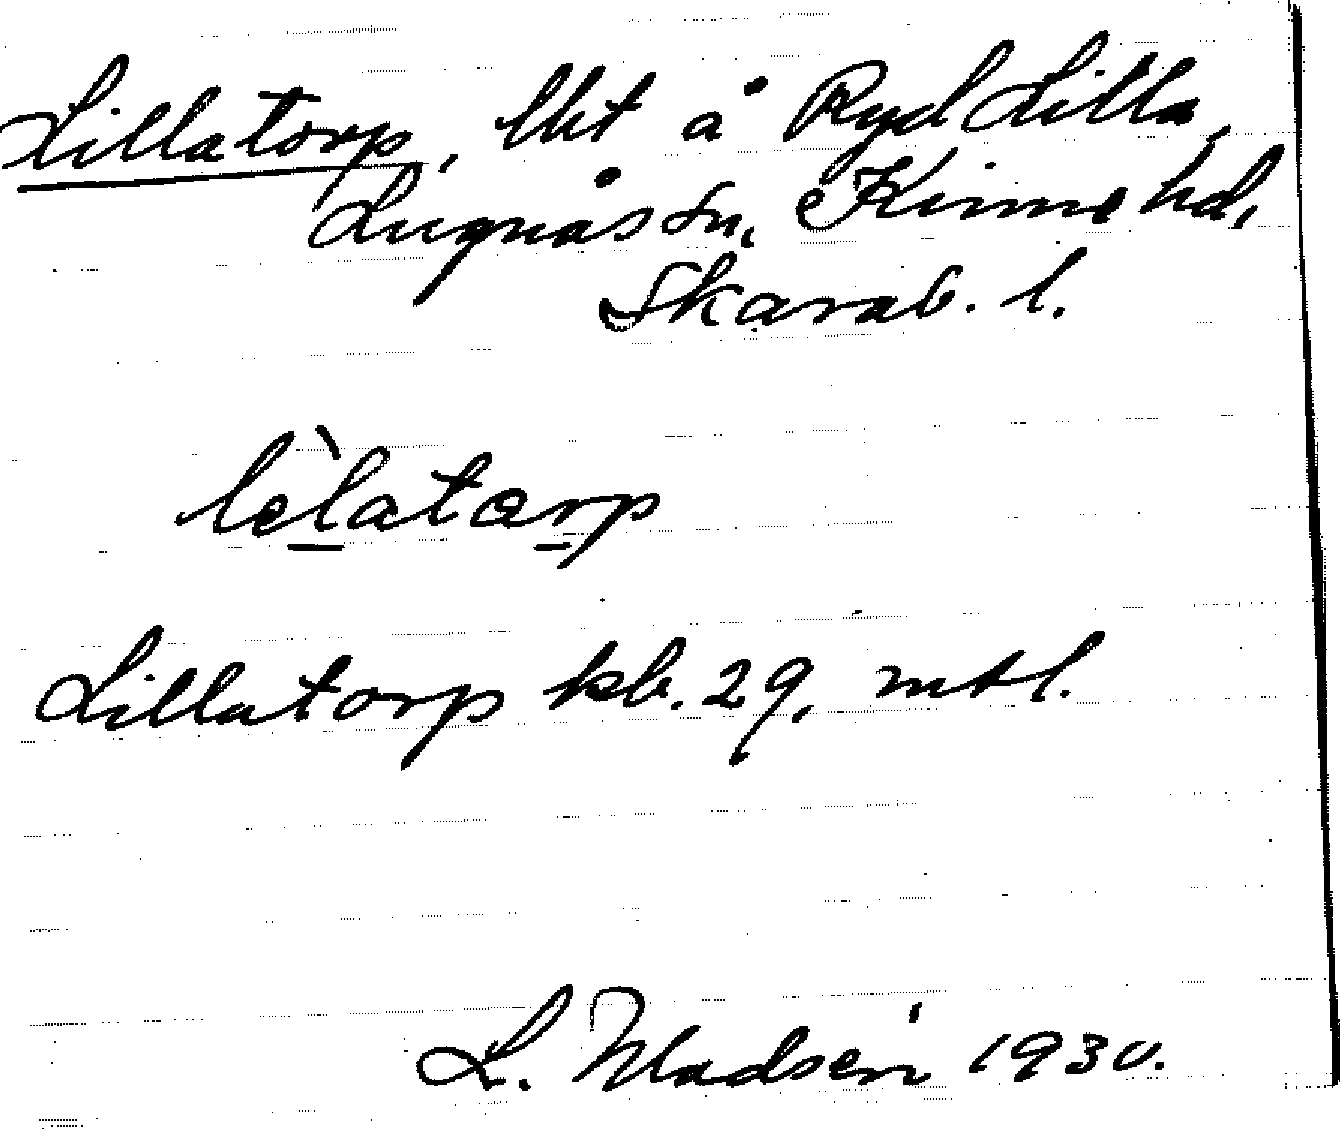 Lillatorp, lht å Ryd Lilla,
Lugnås sn, Kinne hd,
Skarab. l.
lèlatarp
Lillatorp kb. 29, mtl.
L. Modsén 1930.